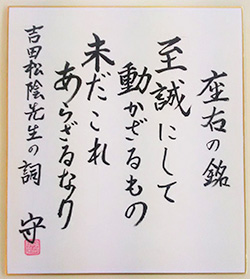 座右の銘
至誠にして
動かざるもの
未だこれ
あらざるなり
吉田松陰先生の詞
守